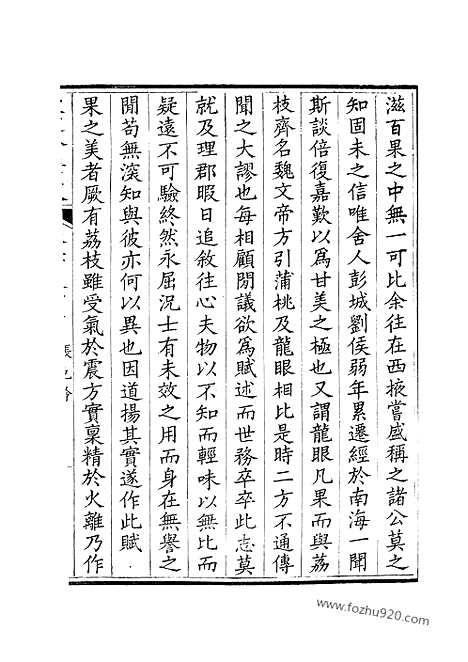 滋百果之中無一可比余往在西掖嘗盛稱之諸公莫之
知固未之信唯舍人彭城劉侯弱年累遷經於南海一聞
斯談倍復嘉歎以為甘美之極也又謂龍眼凡果而與荔
枝齊名魏文帝方引蒲桃及龍眼相比是時二方不通傳
聞之大謬也每相顧閒議欲為賦述而世務卒卒此志莫
就及理郡暇日追敘往心夫物以不知而輕味以無比而
疑遠不可驗終然永屈況士有未效之用而身在無譽之
間苟無深知與彼亦何以異也因道揚其實遂作此賦
果之美者厥有荔枝雖受氣於震方實稟精於火離乃作
www.fozhu920.com